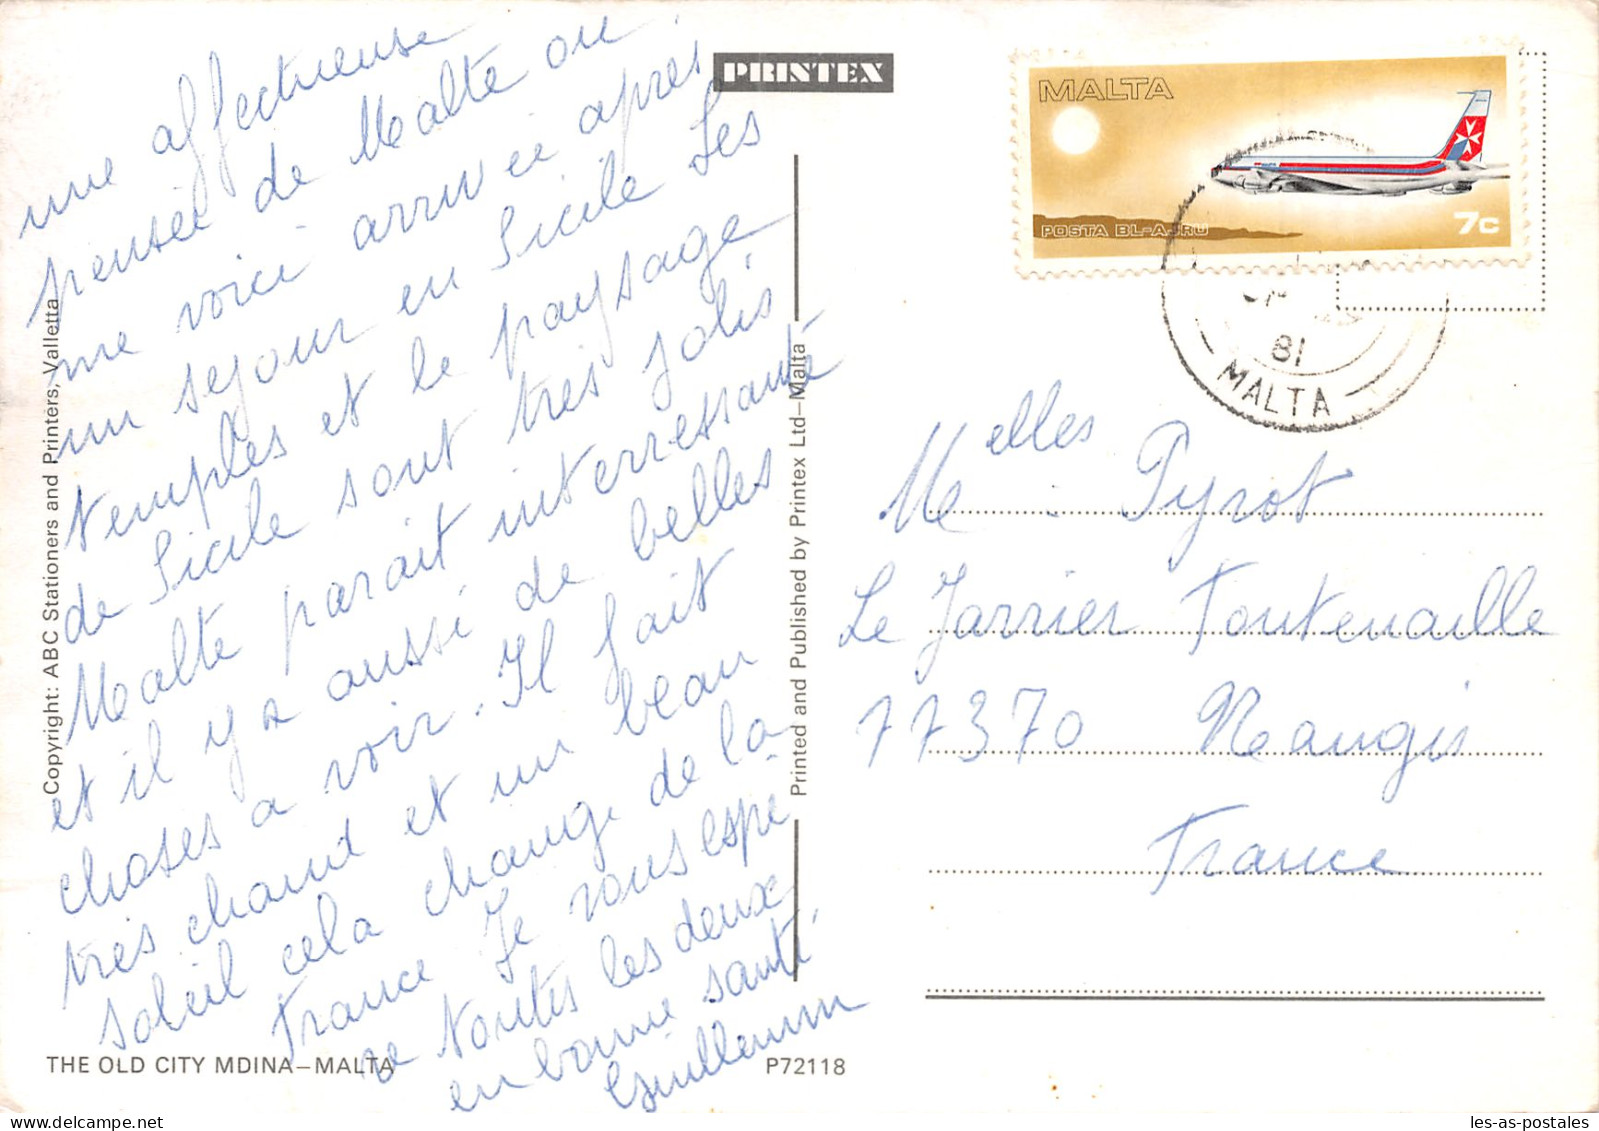 une affectueuse
pensée de Malte ou
me voici arrivée après
un sejour en Sicile Les
temples et le paysage
de Sicile sont très jolis
Malte parait interressante
et il y a aussi de belles
choses a voir. Il fait
très chaud et un beau
soleil cela change de la
France Je vous espè
re toutes les deux
en bonne santé
Guillemin
Copyright: ABC Stationers and Printers, Valletta
THE OLD CITY MDINA–MALTA
P72118
Printed and Published by Printex Ltd–Malta
PRINTEX
MALTA
POSTA BL-AJRU
7c
81
MALTA
Melles Pyrot
Le Jarrier Fontenaille
77370 Nangis
France
les-as-postales